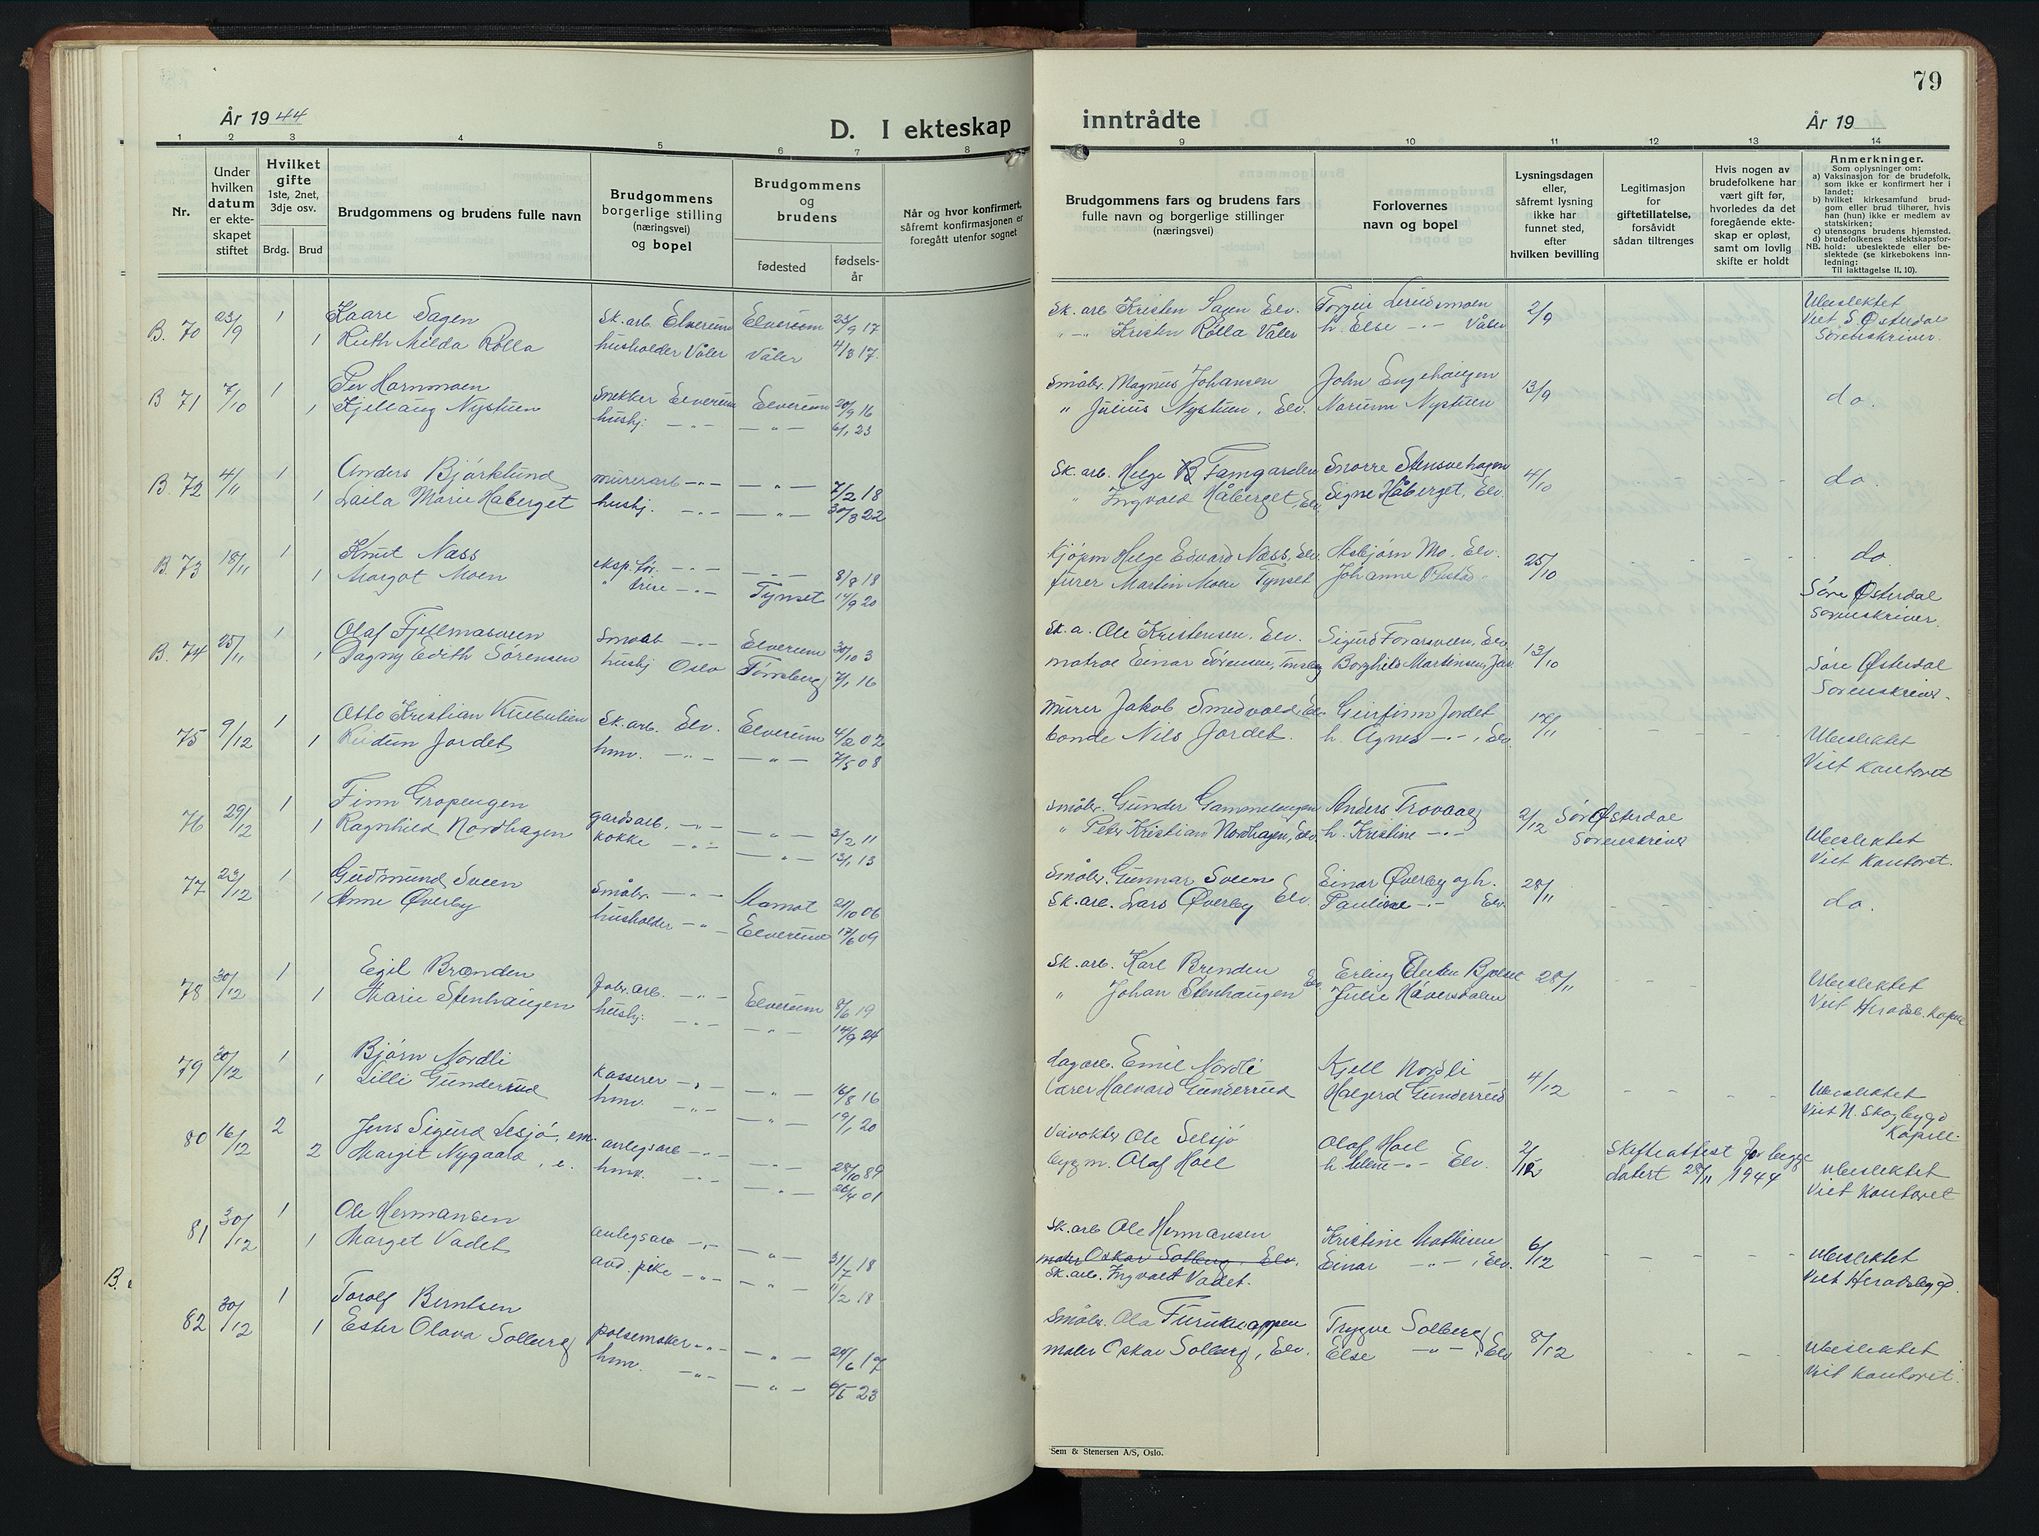 År 1944
D. I ekteskap
1 2 3 4 5 6 7 8
Nr.
Under hvilken datum er ekteskapet stiftet
Hvilket gifte
1ste, 2net, 3dje osv.
Brdg. Brud
Brudgommens og brudens fulle navn
Brudgommens borgerlige stilling (næringsvei) og bopel
Brudgommens og brudens
fødested fødselsår
Når og hvor konfirmert, såfremt konfirmasjonen er foregått utenfor sognet
B. 70 23/9 1 Kaare Sagen Sk. arb. Elverum Elverum 23/9 17
1 Ruth Milda Rølla husholder Våler Våler 4/3 17.
B 71 7/10 1 Per Hornmoen Snekker Elverum Elverum 20/9 16
1 Kjellaug Nystuen hushj. — " — — " — 6/1 23
B. 72 4/11 1 Anders Bjørklund murerarb — " — — " — 7/2 18
1 Laila Marie Haberget hushj. — " — — " — 30/3 22
B. 73 18/11 1 Knut Næss eksp. før. — " — — " — 8/8 18
1 Margot Moen " trise — " — Tynset 14/9 20
B. 74 25/11 1 Olaf Fjellmosveen — " — Elverum 30/10 3
1 Dagny Edith Sørensen hushj Oslo Tønsberg 7/1 16
75 9/12 1 Otto Kristian Sk. arb. Elv. Elverum 4/2 02
1 Reidun Jordet hmv. — " — — " — 7/5 08
76 29/12 1 Finn Gropengen gardsarb. — " — — " — 3/2 11
1 Ragnhild Nordhagen kokke — " — — " — 13/1 13
77 23/12 1 Gudmund Sveen Småbr. — " — Aamot 21/10 06
1 Anne Øverby husholder — " — Elverum 17/6 09
78 30/12 1 Egil Brænden Fabr. arb. — " — Elverum 8/6 19
1 Marie Stenhaugen hushj. — " — — " — 14/9 24
79 30/12 1 Bjørn Nordli kasserer — " — — " — 16/8 16
1 Lilli Gunderud hmv. — " — — " — 19/1 20
80 16/12 2 Jens Sigurd Lesjø, em. anlegsarb — " — — " — 28/10 89
2 Margit Nygaard, e. hmv. — " — — " — 26/4 01
81 30/12 1 Ole Hermansen anlegsarb — " — — " — 31/7 18
1 Marget Vadet and. pike — " — — " — 11/2 18
B.
82 30/12 1 Torolf Berntsen pølsemaker — " — — " — 24/6 17
1 Ester Olava Solberg hmv. — " — — " — 6/5 23
79
inntrådte
År 19
9 10 11 12 13 14
Brudgommens fars og brudens fars fulle navn og borgerlige stillinger (næringsvei)
Forlovernes navn og bopel
Lysningsdagen eller, såfremt lysning ikke har funnet sted, efter hvilken bevilling
Legitimasjon for giftetillatelse, forsåvidt sådan tiltrenges
Hvis nogen av brudefolkene har vært gift før, hvorledes da det foregående ekteskap er opløst, samt om lovlig skifte er holdt
Anmerkninger.
Som oplysninger om:
a) Vaksinasjon for de brudefolk, som ikke er konfirmert her i landet;
b) hvilket kirkesamfund brudgom eller brud tilhører, hvis han (hun) ikke er medlem av statskirken;
c) utensogns brudens hjemsted.
d) brudefolkenes slektskapsforhold: ubeslektede eller beslektede (se kirkebokens innledning;
NB. Til iakttagelse II, 10).
Sk. arb. Kristen Sagen Elv. Torgeir Lindsmoen 2/9 Ubeslektet
— " — Kristen Rølla Våler h. Else — " — Våler Viet S. Østerdal
Sorenskriver.
Småbr. Magnus Johansen John Engehaugen 13/9 do.
" Julius Nystuen, Elv. Marum Nystuen
Sk. arb. Helge B Famgarden Snorre Stensvehagen 4/10 do.
" Ingvald Håberget, Elv. Signe Håberget, Elv.
Kjøpm Helge Edvard Næss, Elv. Asbjørn Mo. Elv. 25/10 do.
furer Martin Moen Tynset Johanne
Søre Østerdal
Sorenskriver.
Sk. a. Ole Kristensen. Elv. Sigurd 13/10
matros Einar Sørensen, Tønsberg Borghild Martensen,
Søre Østerdal
Sorenskriver.
murer Jakob Smedvold, Elv. Geirfinn Jordet 17/11
bonde Nils Jordet. h. Agnes — " —, Elv.
Ubeslektet
Viet Kontoret
Småbr. Gunder Gammelengen Anders Trovaag 2/12 Sør Østerdal
" Peter Kristian Nordhagen, Elv. h. Kristine — " — Sorenskriver
Ubeslektet
Viet Kontoret.
Småbr. Gunnar Sveen Einar Øverby og h. 28/11
Sk. arb. Lars Øverby Elv. Pauline — " — Elv. do.
Sk. arb. Karl Brenden Erling 28/11 Ubeslektet
" Johan Stenhaugen Elv. Julie Håversdalen
Viet Heradsb. Kapel
dagarb. Emil Nordli Kjell Nordli 4/12
Halvard Gunderrud Halgerd Gunderrud
Ubeslektet
Viet N. Skogbygd
Kapell.
Veivokter Ole Selsjø Olaf Hoel 2/12 Skifteattest for begge
bygm. Olaf Hoel h. Helene — " — Elv. datert 28/11 1944
Ubeslektet
Viet Kontoret
Sk. arb Ole Hermansen Kristine Mathisen 6/12
maler Oskar Solberg, Elv. Einar — " —, Elv.
Sk. arb. Ingvald Vadet.
Ubeslektet
Viet Heradsbygd
Småbr. Ola Furuknappen Trygve Solberg 8/12
maler Oskar Solberg, Elv. Else — " —, Elv
Ubeslektet
Viet Kontoret.
Sem & Stenersen A/S, Oslo.